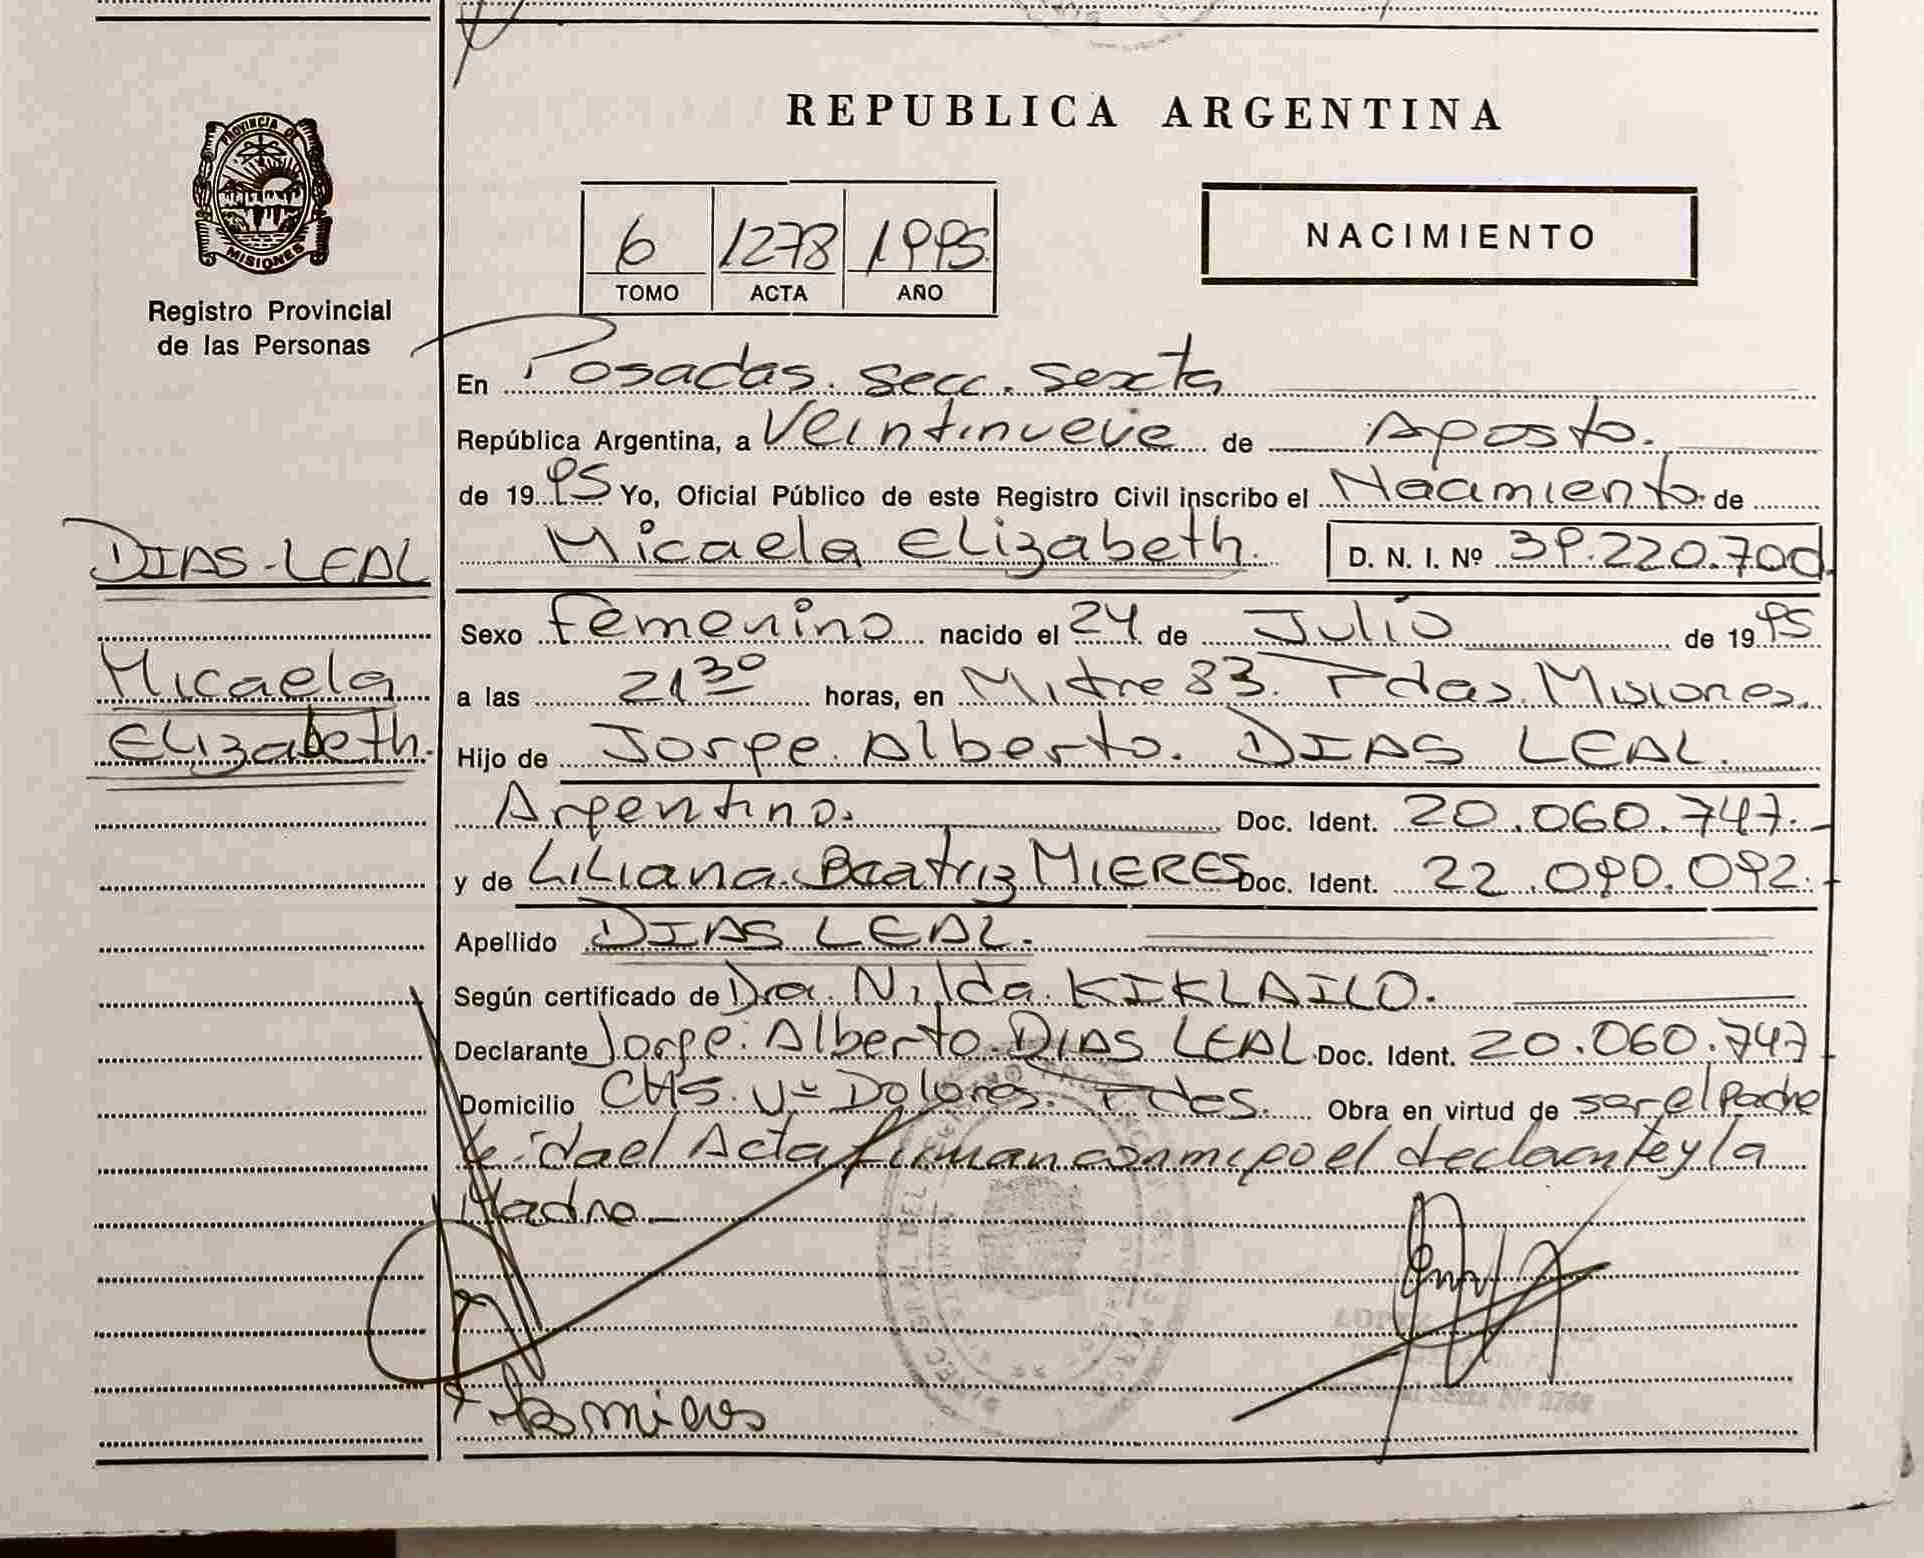 REPUBLICA ARGENTINA
PROVINCIA DE
MISIONES
Registro Provincial
de las Personas
6 1278 1995
TOMO ACTA AÑO
NACIMIENTO
En Posadas. secc. sexta
República Argentina, a Veintinueve de Agosto.
de 1995 Yo, Oficial Público de este Registro Civil inscribo el Nacimiento de
Micaela Elizabeth. D. N. I. Nº 39.220.700
DIAS-LEAL
Micaela
Elizabeth.
Sexo femenino nacido el 24 de Julio de 1995
a las 21 30 horas, en Mitre 83. Pdas. Misiones.
Hijo de Jorge Alberto. DIAS LEAL.
Argentino. Doc. Ident. 20.060.747.
y de Liliana Beatriz MIERES Doc. Ident. 22.090.092.
Apellido DIAS LEAL.
Según certificado de Dra. Nilda KIKLAILO.
Declarante Jorge Alberto DIAS LEAL Doc. Ident. 20.060.747
Domicilio CHS. Vª Dolores. Pdas. Obra en virtud de ser el Padre
Leida el Acta firman conmigo el declarante y la
Madre